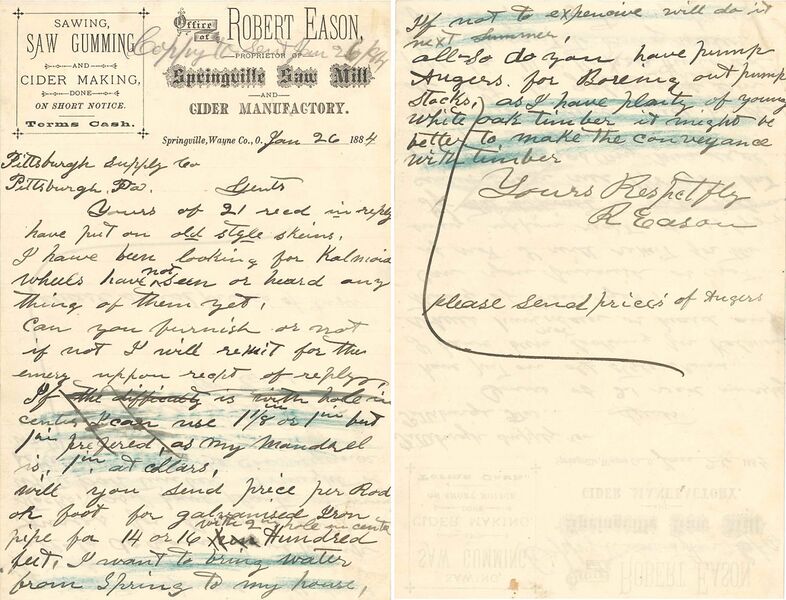 SAWING,
SAW GUMMING
AND
CIDER MAKING,
DONE
ON SHORT NOTICE.
Terms Cash.
Office
of
ROBERT EASON,
PROPRIETOR OF
Springville Saw Mill
AND
CIDER MANUFACTORY.
Coppy to Send Jan 26
Springville, Wayne Co., O. Jan 26 1884
Pittsburgh Supply Co
Pittsburgh, Pa. Gents
Yours of 21 recd in reply
have put on old style skeins.
I have been looking for
wheels have not seen or heard any
thing of them yet,
Can you furnish or not
if not I will remit for the
emery uppon recpt of reply,
If the difficuty is with hole in
center I can use 1 1/8 in or 1 in but
1 in prefered, as my Mandrel
is, 1 in. at collars,
will you send price per Rod
or foot for galvanised Iron
with 2 in hole in center
pipe for 14 or 16 Hundred
feet, I want to bring water
from Spring to my house,
If not to expencive will do it
next summer,
all-so do you have pump
Augers. for Boreing out pump
stocks, as I have planty of young
white oak timber it might be
better to make the conveyance
with timber
Yours Respetfly
R Eason
please send prices of Augers